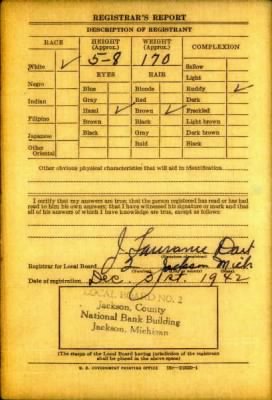 REGISTRAR'S REPORT
DESCRIPTION OF REGISTRANT
RACE HEIGHT (Approx.) WEIGHT (Approx.) COMPLEXION
White ✓ 5-8 170 Sallow
EYES HAIR Light
Negro Blue Blonde Ruddy ✓
Indian Gray Red Dark
Hazel ✓ Brown ✓ Freckled
Filipino Brown Black Light brown
Japanese Black Gray Dark brown
Other Oriental Bald Black
Other obvious physical characteristics that will aid in identification
I certify that my answers are true; that the person registered has read or has had
read to him his own answers; that I have witnessed his signature or mark and that
all of his answers of which I have knowledge are true, except as follows:
J. Laurance Dart
Registrar for Local Board 2 Jackson Mich
Date of registration Dec. 1942
LOCAL BOARD NO. 2
Jackson, County
National Bank Building
Jackson, Michigan
(The stamp of the Local Board having jurisdiction of the registrant
shall be placed in the above space)
U. S. GOVERNMENT PRINTING OFFICE